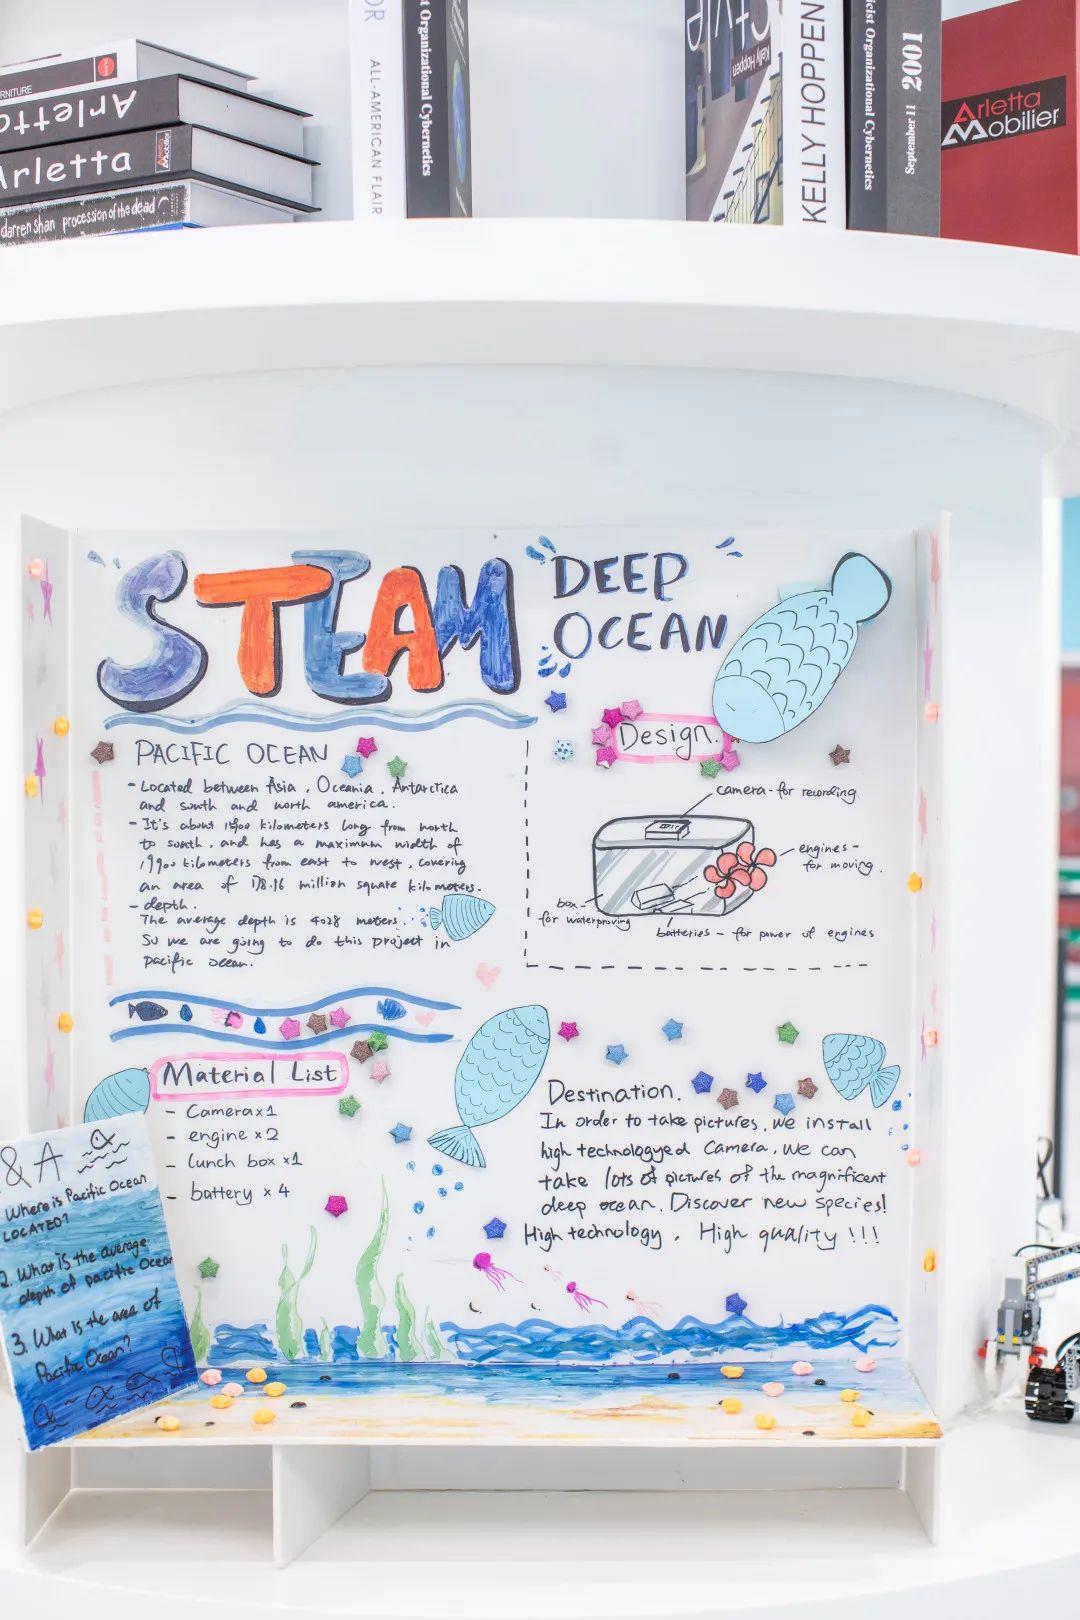 FURNITURE
Arletta
Arletta
darren shan procession of the dead
ALL-AMERICAN FLAIR
Organizational Cybernetics
Kelly Hoppen
KELLY HOPPEN
Organizational Cybernetics
September 11 2001
Arletta
Mobilier
STEAM
DEEP
OCEAN
PACIFIC OCEAN
- Located between Asia, Oceania, Antarctica
and south and north america.
- It's about kilometers long from north
to south, and has a maximum width of
19900 kilometers from east to west, covering
an area of 178.16 million square kilometers.
- depth.
The average depth is 4028 meters.
So we are going to do this project in
pacific ocean.
Design.
camera - for recording
engines -
for moving.
box -
for waterproofing
batteries - for power of engines
Material List
- Camera x1
- engine x2
- lunch box x1
- battery x 4
Destination.
In order to take pictures, we install
high technologyed camera. We can
take lots of pictures of the magnificent
deep ocean. Discover new species!
High technology, High quality !!!
& A
Where is Pacific Ocean
LOCATED?
2. What is the average
depth of pacific Ocean
3. What is the area of
Pacific Ocean?